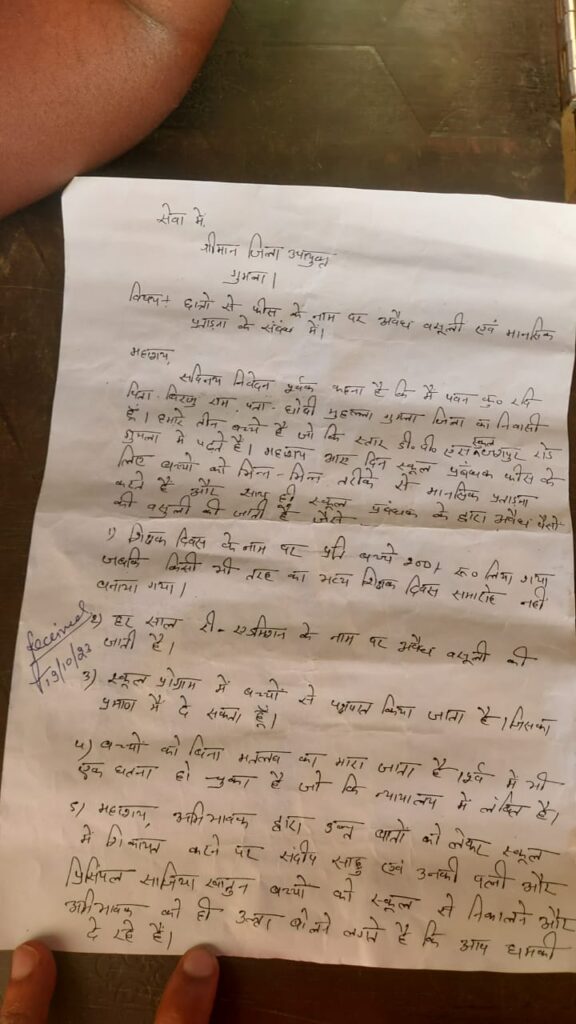 सेवा में,
श्रीमान जिला उपायुक्त
गुमला।
विषय:- छात्रो से फीस के नाम पर अवैध वसूली एवं मानसिक
प्रताड़ना के संबंध में।
महाशय,
सविनय निवेदन पूर्वक कहना है कि मैं पवन कु० रवि
पिता- बिरजु राम, पता- धोबी मुहल्ला गुमला जिला का निवासी
हूँ। हमारे तीन बच्चे है जो कि स्टार डी. पी. एस स्कूल रोड
गुमला में पढ़ते है। महाशय आए दिन स्कूल प्रबंधक फीस के
लिए बच्चो को भिन्न-भिन्न तरीके से मानसिक प्रताड़ना
करते है और साथ ही स्कूल प्रबंधक के द्वारा अवैध पैसो
की वसूली की जाती है जैसे
1) शिक्षक दिवस के नाम पर प्रति बच्चे 200/ रू० लिया गया
जबकि किसी भी तरह का भव्य शिक्षक दिवस समारोह नहीं
बनाया गया।
2) हर साल री-एडमिशन के नाम पर अवैध वसूली की
जाती है।
Received
19/10/23
3) स्कूल प्रोग्राम में बच्चों से पक्षपात किया जाता है। जिसका
प्रमाण मैं दे सकता हूँ।
4) बच्चो को बिना मतलब का मारा जाता है। पूर्व में भी
एक घटना हो चुका है जो कि न्यायालय में लंबित है।
5) महाशय, अभिभावक द्वारा इन बातों को लेकर स्कूल
में शिकायत करने पर संदीप साहु एवं उनकी पत्नी और
प्रिंसिपल साजिया खातुन बच्चो को स्कूल से निकालने और
अभिभावक को ही उल्टा बोलने लगते है कि आप धमकी
दे रहे है।